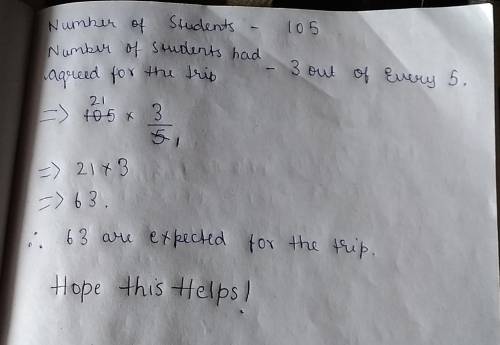 Number of Students - 105
Number of Students had
agreed for the trip - 3 out of Every 5.
21
=> 105 * 3/5 1
=> 21 * 3
=> 63.
∴ 63 are expected for the trip.
Hope this Helps!